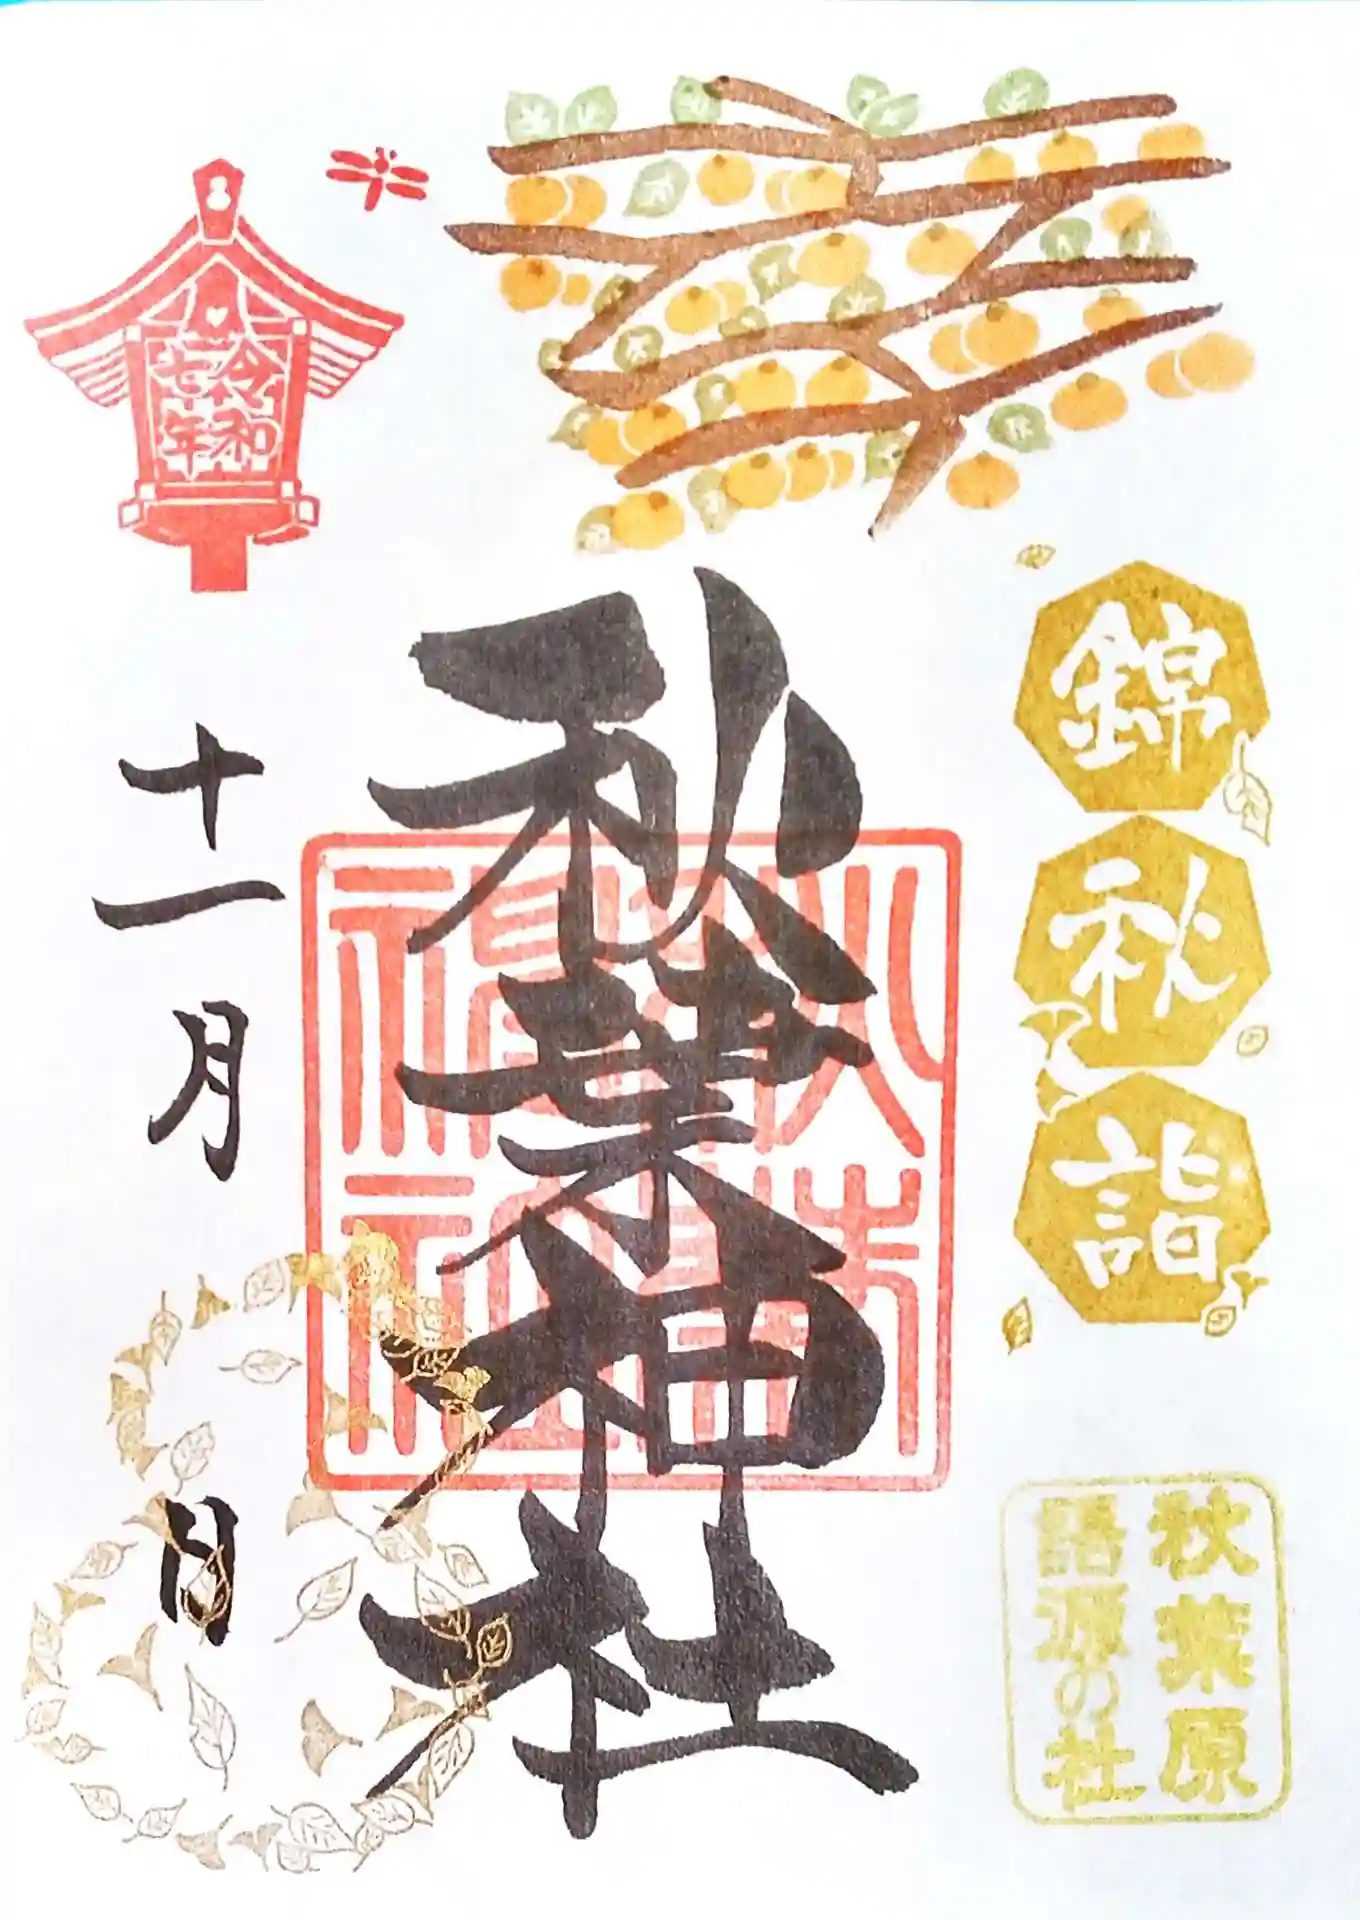 錦秋詣
秋葉原
語源の社
秋葉神社
令和
七年
十一月
日